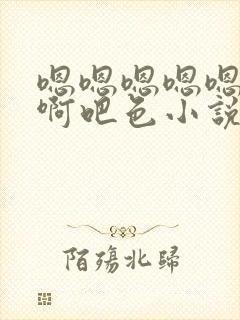 嗯嗯嗯嗯嗯
啊吧色小說
陌殤北歸